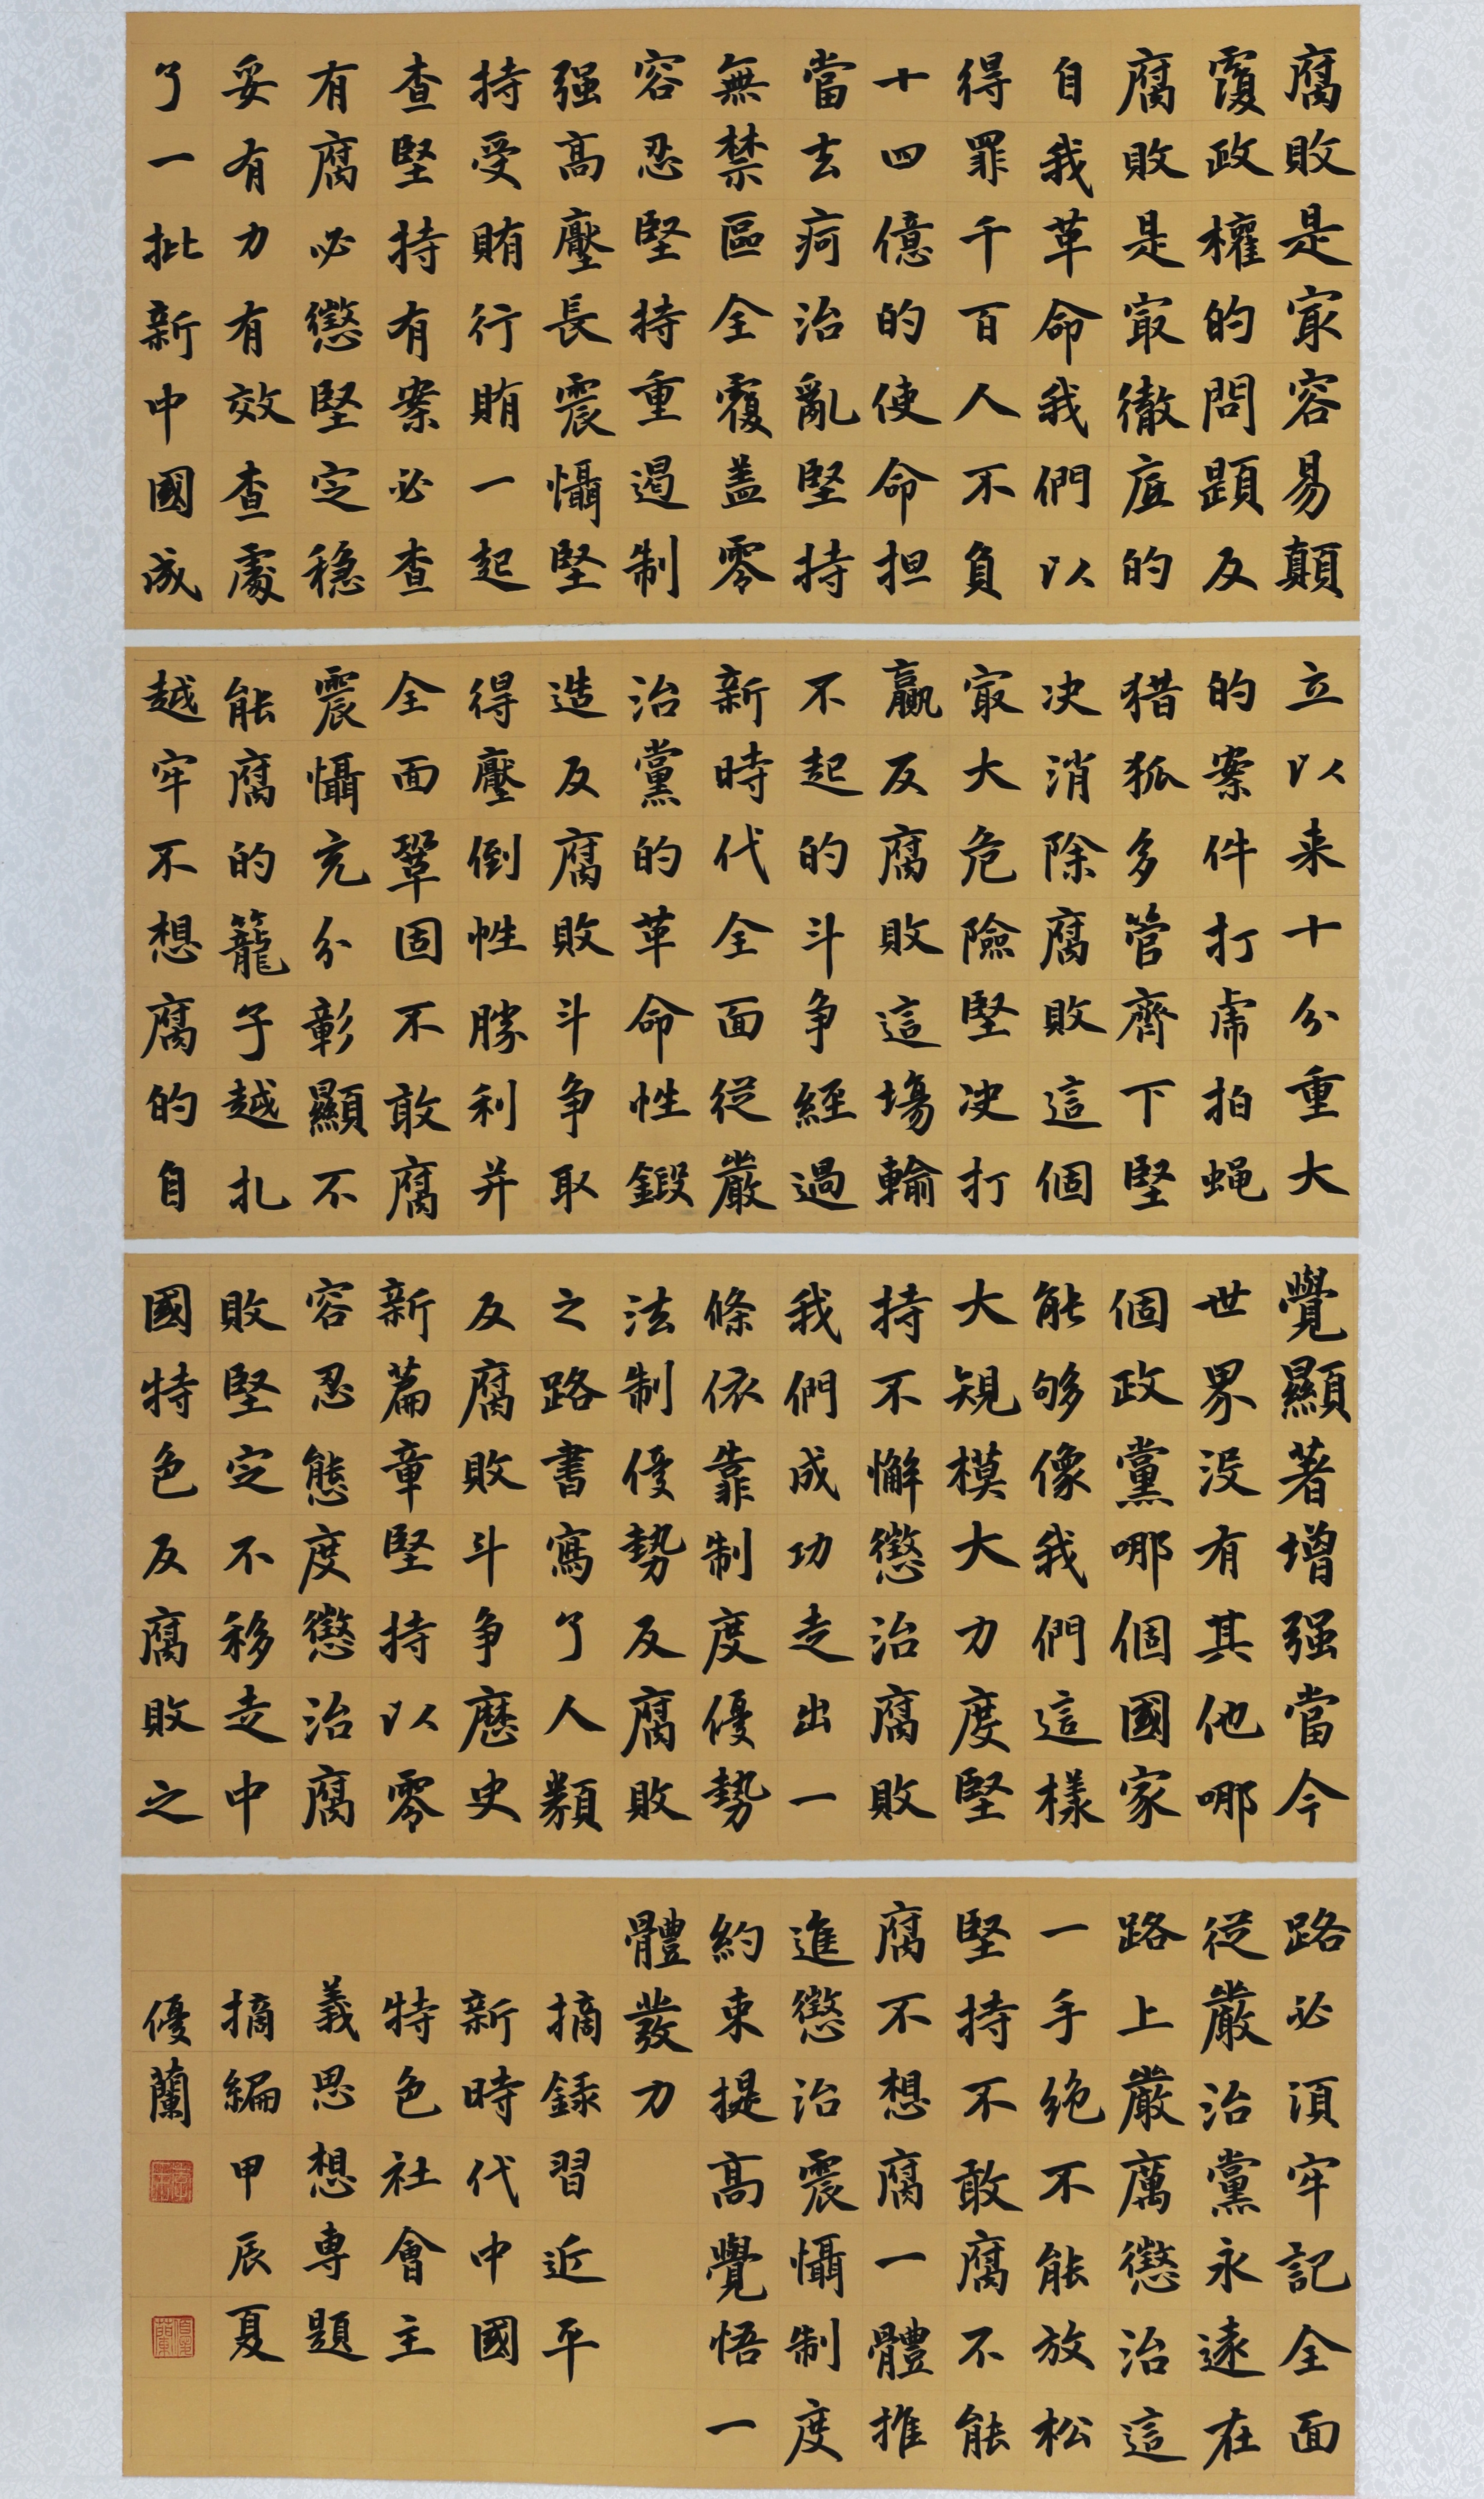 腐敗是冣容易顛
覆政權的問題反
腐敗是冣徹底的
自我革命我們以
得罪千百人不負
十四億的使命担
當去疴治亂堅持
無禁區全覆蓋零
容忍堅持重遏制
强高壓長震懾堅
持受賄行賄一起
查堅持有案必查
有腐必懲堅定穩
妥有力有效查處
了一批新中國成
立以来十分重大
的案件打虎拍蝇
猎狐多管齊下堅
决消除腐敗這個
冣大危險堅决打
贏反腐敗這場輸
不起的斗争經過
新時代全面從嚴
治黨的革命性鍛
造反腐敗斗争取
得壓倒性勝利并
全面鞏固不敢腐
震懾充分彰顯不
能腐的籠子越扎
越牢不想腐的自
覺顯著增强當今
世界没有其他哪
個政黨哪個國家
能够像我們這樣
大規模大力度堅
持不懈懲治腐敗
我們成功走出一
條依靠制度優勢
法制優勢反腐敗
之路書寫了人類
反腐敗斗争歷史
新篇章堅持以零
容忍態度懲治腐
敗堅定不移走中
國特色反腐敗之
路必須牢記全面
從嚴治黨永遠在
路上嚴厲懲治這
一手绝不能放松
堅持不敢腐不能
腐不想腐一體推
進懲治震懾制度
約束提高覺悟一
體發力
摘録習近平
新時代中國
特色社會主
義思想專題
摘編甲辰夏
優蘭